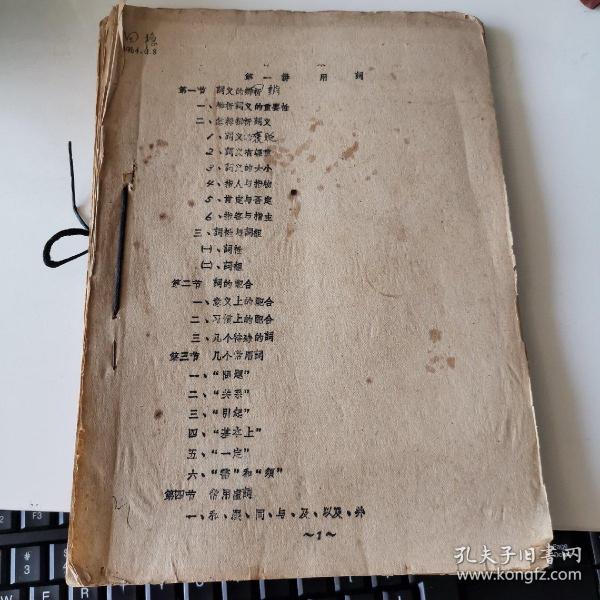 1964.9.8
第一讲 用 詞
第一节 詞义的辨析
一、辨析詞义的重要性
二、怎样辨析詞义
1、詞义的褒贬
2、詞义有轻重
3、詞义的大小
4、指人与指物
5、肯定与否定
6、指客与指主
三、詞性与詞組
㈠、詞性
㈡、詞組
第二节 詞的配合
一、意义上的配合
二、习惯上的配合
三、几个特殊的詞
第三节 几个常用詞
一、“问题”
二、“关系”
三、“引起”
四、“基本上”
五、“一定”
六、“需”和“须”
第四节 常用虛詞
一、和、跟、同、与、及、以及、并
～1～
孔夫子旧书网
www.kongfz.com